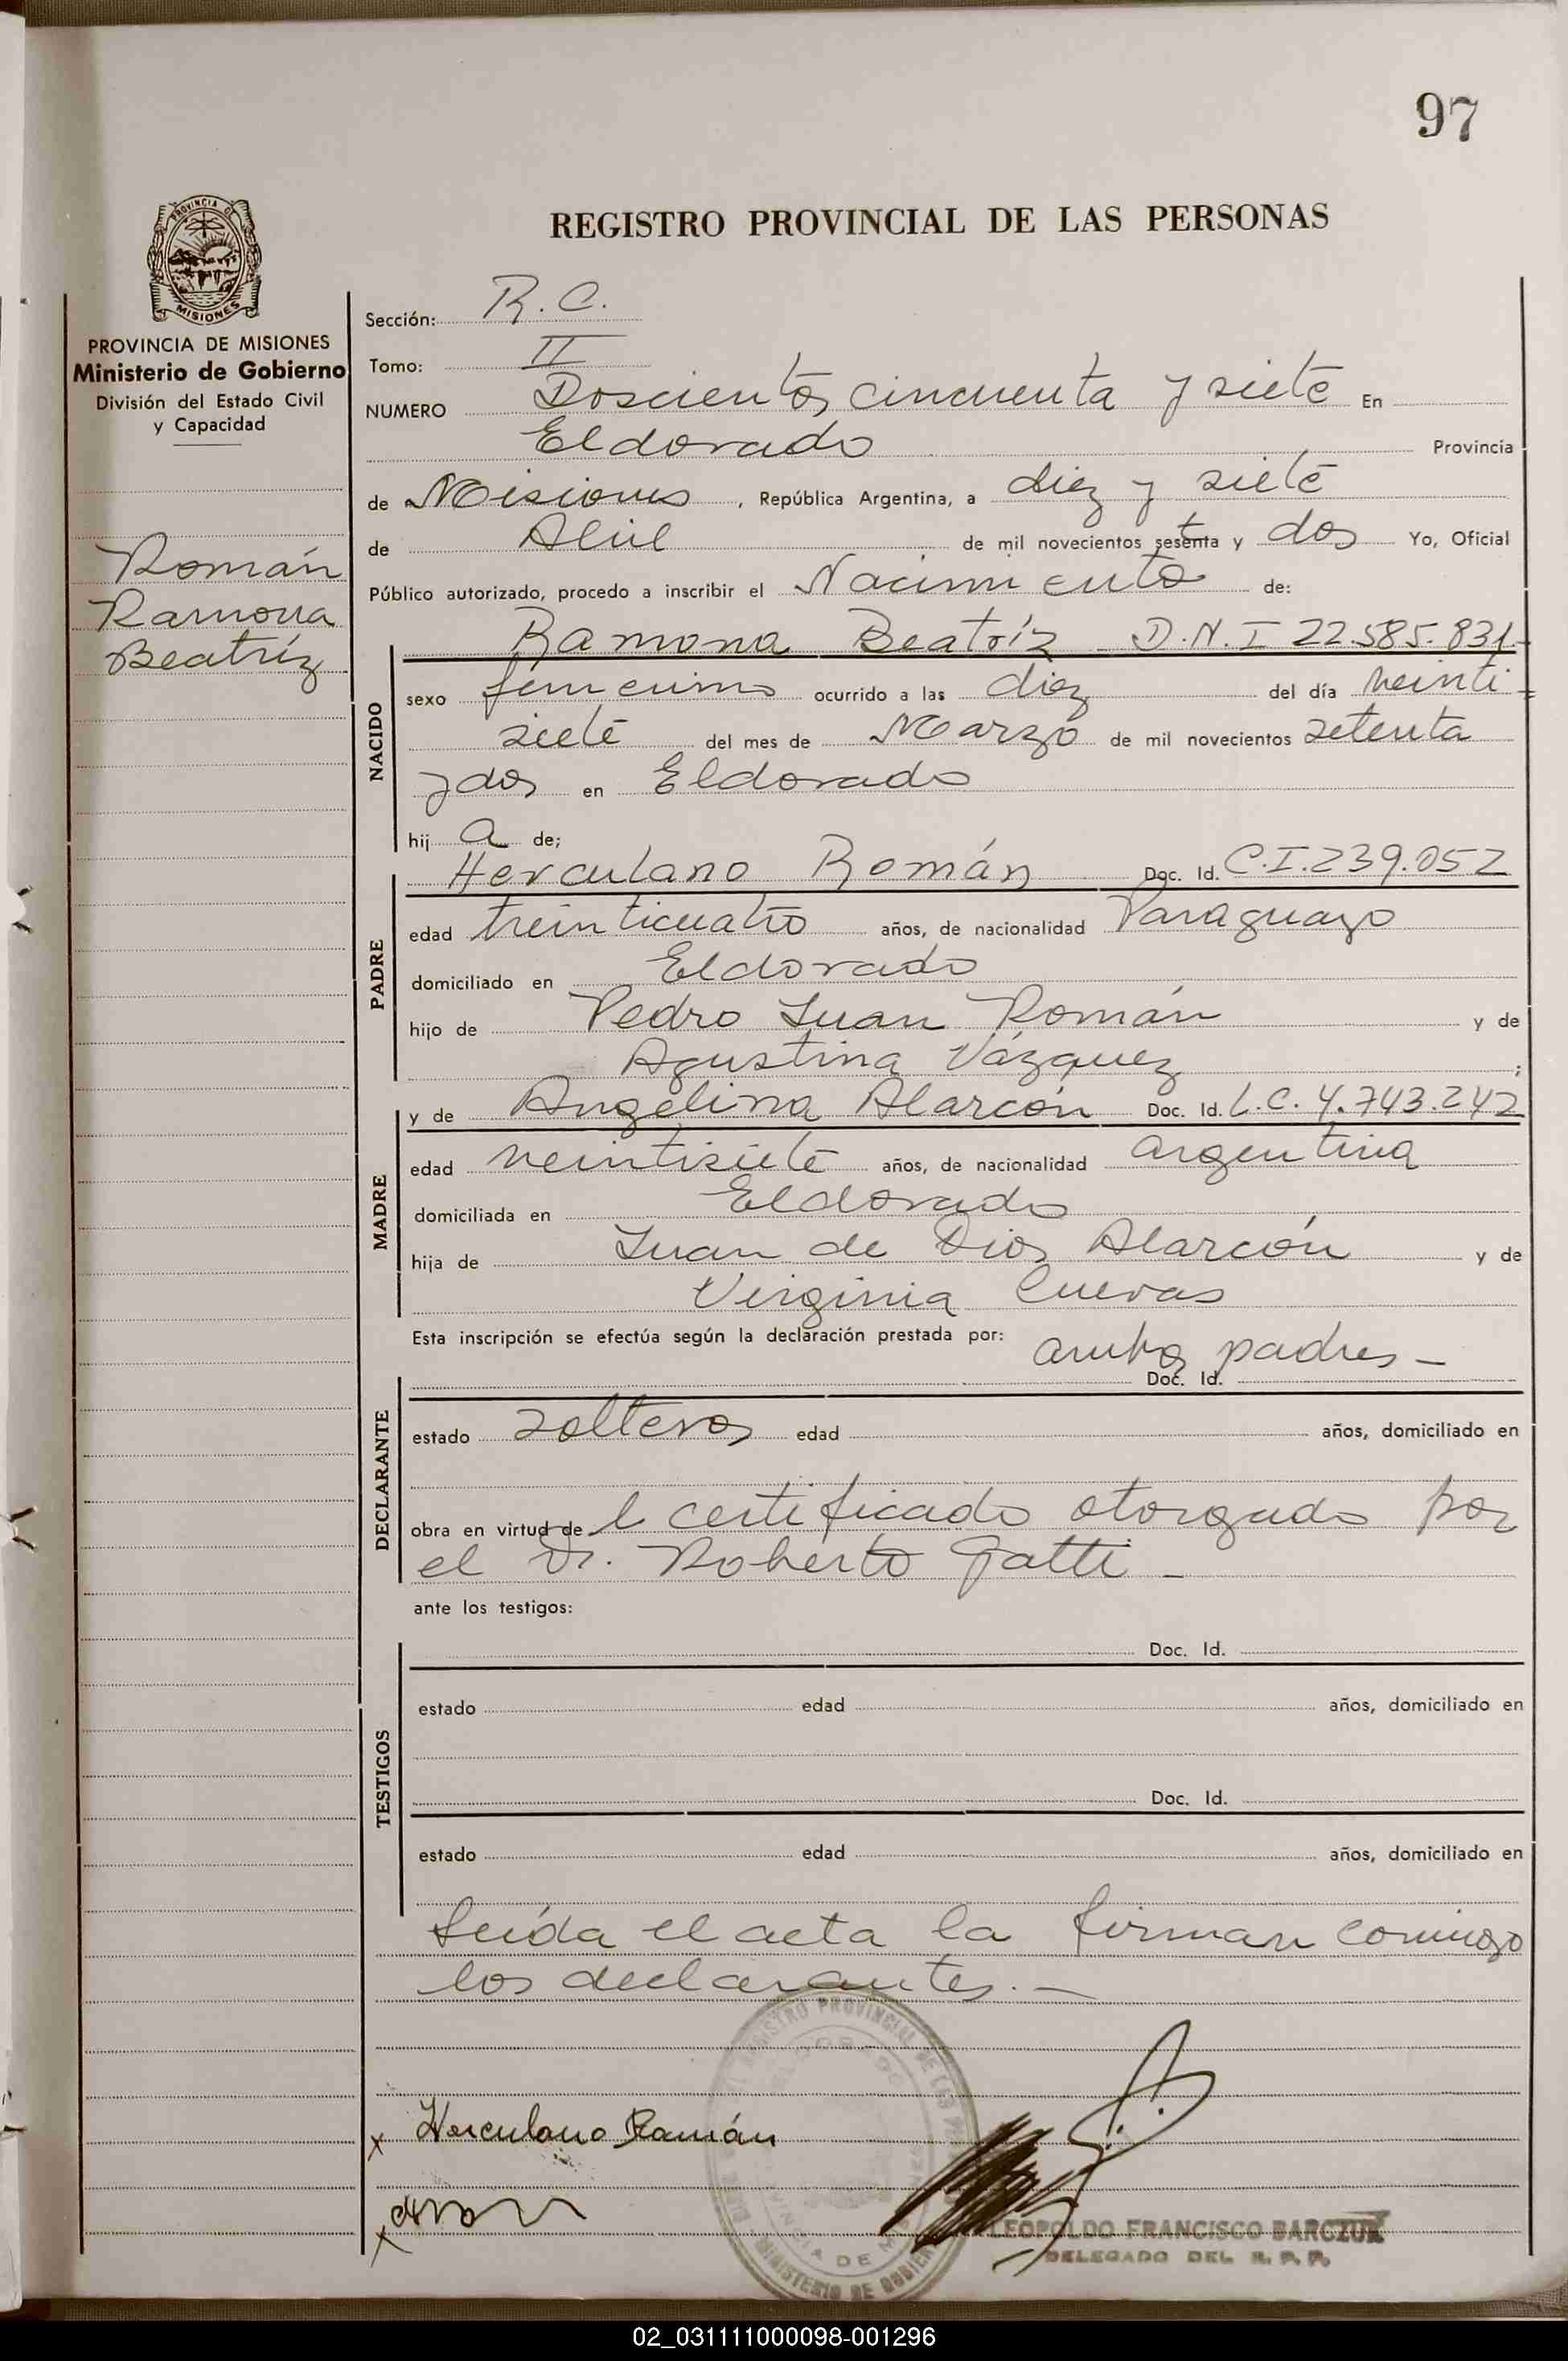 97
PROVINCIA DE
MISIONES
REGISTRO PROVINCIAL DE LAS PERSONAS
PROVINCIA DE MISIONES
Ministerio de Gobierno
División del Estado Civil
y Capacidad
Román
Ramona
Beatríz
Sección: R.C.
Tomo: II
NUMERO Doscientos cincuenta y siete En
Eldorado Provincia
de Misiones, República Argentina, a diez y siete
de Abril de mil novecientos sesenta y dos Yo, Oficial
Público autorizado, procedo a inscribir el Nacimiento de:
NACIDO
Ramona Beatríz D.N.I 22.585.831-
sexo femenino ocurrido a las diez del día veinti
siete del mes de Marzo de mil novecientos setenta
y dos en Eldorado
hij a de;
PADRE
Herculano Román Doc. Id. C.I.239.052
edad treinticuatro años, de nacionalidad Paraguayo
domiciliado en Eldorado
hijo de Pedro Juan Román y de
Agustina Vázquez ;
MADRE
y de Angelina Alarcón Doc. Id. L.C. 4.743.242
edad veintisiete años, de nacionalidad argentina
domiciliada en Eldorado
hija de Juan de Dios Alarcón y de
Virginia Cuevas
Esta inscripción se efectúa según la declaración prestada por: ambos padres -
DECLARANTE
Doc. Id.
estado solteros edad años, domiciliado en
obra en virtud de l certificado otorgado por
el Dr. Roberto Gatti -
ante los testigos:
TESTIGOS
Doc. Id.
estado edad años, domiciliado en
Doc. Id.
estado edad años, domiciliado en
Leída el acta la firman conmigo
los declarantes. -
x Herculano Román
x
LEOPOLDO FRANCISCO BARCZUK
DELEGADO DEL R. P. P.
02_031111000098-001296